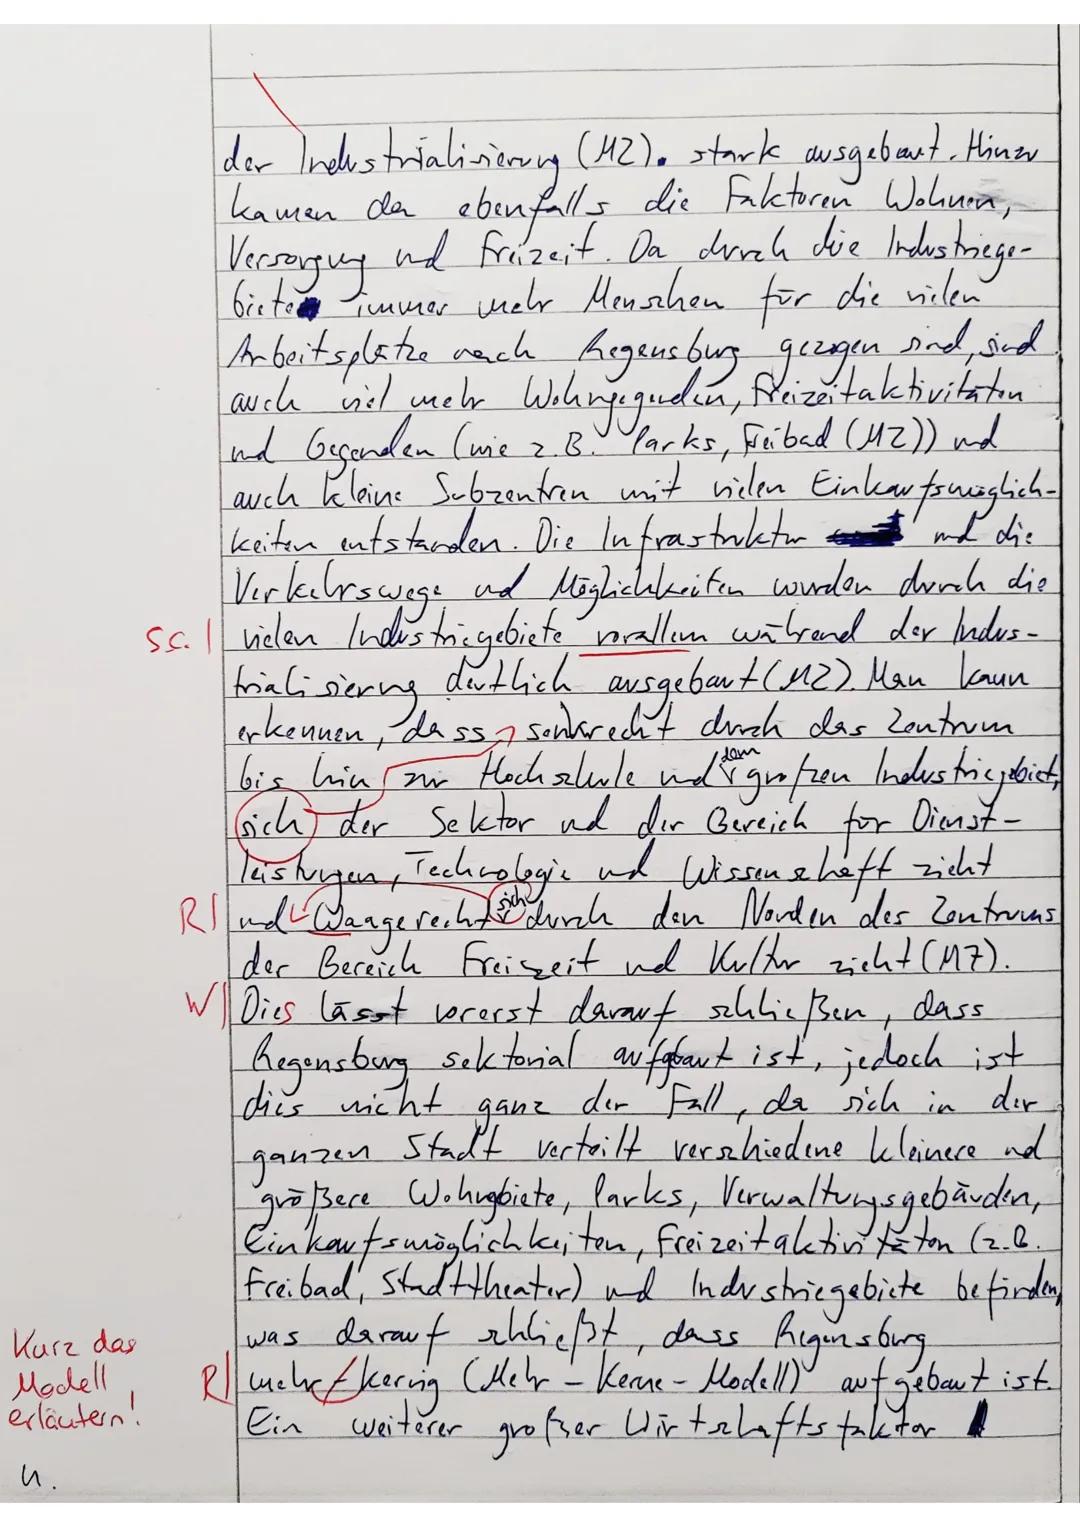 der Industrialisierung (M2). stark ausgebaut. Hinzu
kamen da ebenfalls die Faktoren Wohnen,
Versorgung und Freizeit. Da durch die Industriege-
biete immer mehr Menschen für die vielen
Arbeitsplätze nach Regensburg gezogen sind, sind
auch viel mehr Wohngegenden, Freizeitaktivitäten
und Gegenden (wie z.B. Parks, Freibad (M2)) und
auch kleine Subzentren mit vielen Einkaufsmöglich-
keiten entstanden. Die Infrastruktur und die
Verkehrswege und Möglichkeiten wurden durch die
sc. | vielen Industriegebiete vorallem während der Indus-
trialisierung deutlich ausgebaut (M2). Man kann
erkennen, dass senkrecht durch das Zentrum
bis hin zur Hochschule und dem großen Industriegebiet,
sich der Sektor und der Bereich für Dienst-
leistungen, Technologie und Wissenschaft zieht
R| und Waagerecht sich durch den Norden des Zentrums
der Bereich Freiszeit und Kultur zieht (M7).
W| Dies lässt vorerst darauf schließen, dass
Regensburg sektorial aufgbaut ist, jedoch ist
dies nicht ganz der Fall, da sich in der
ganzen Stadt verteilt verschiedene kleinere und
größere Wohngbiete, Parks, Verwaltungsgebäuden,
Einkaufsmöglichkeiten, Freizeitaktivitäten (z.B.
Freibad, Stadttheater) und Industriegebiete befinden,
was darauf schließt, dass Regensburg
R| mehr-kernig (Mehr-Kerne-Modell) aufgebaut ist.
Ein weiterer großer Wirtschaftsfaktor
Kurz das
Modell
erläutern!
u.